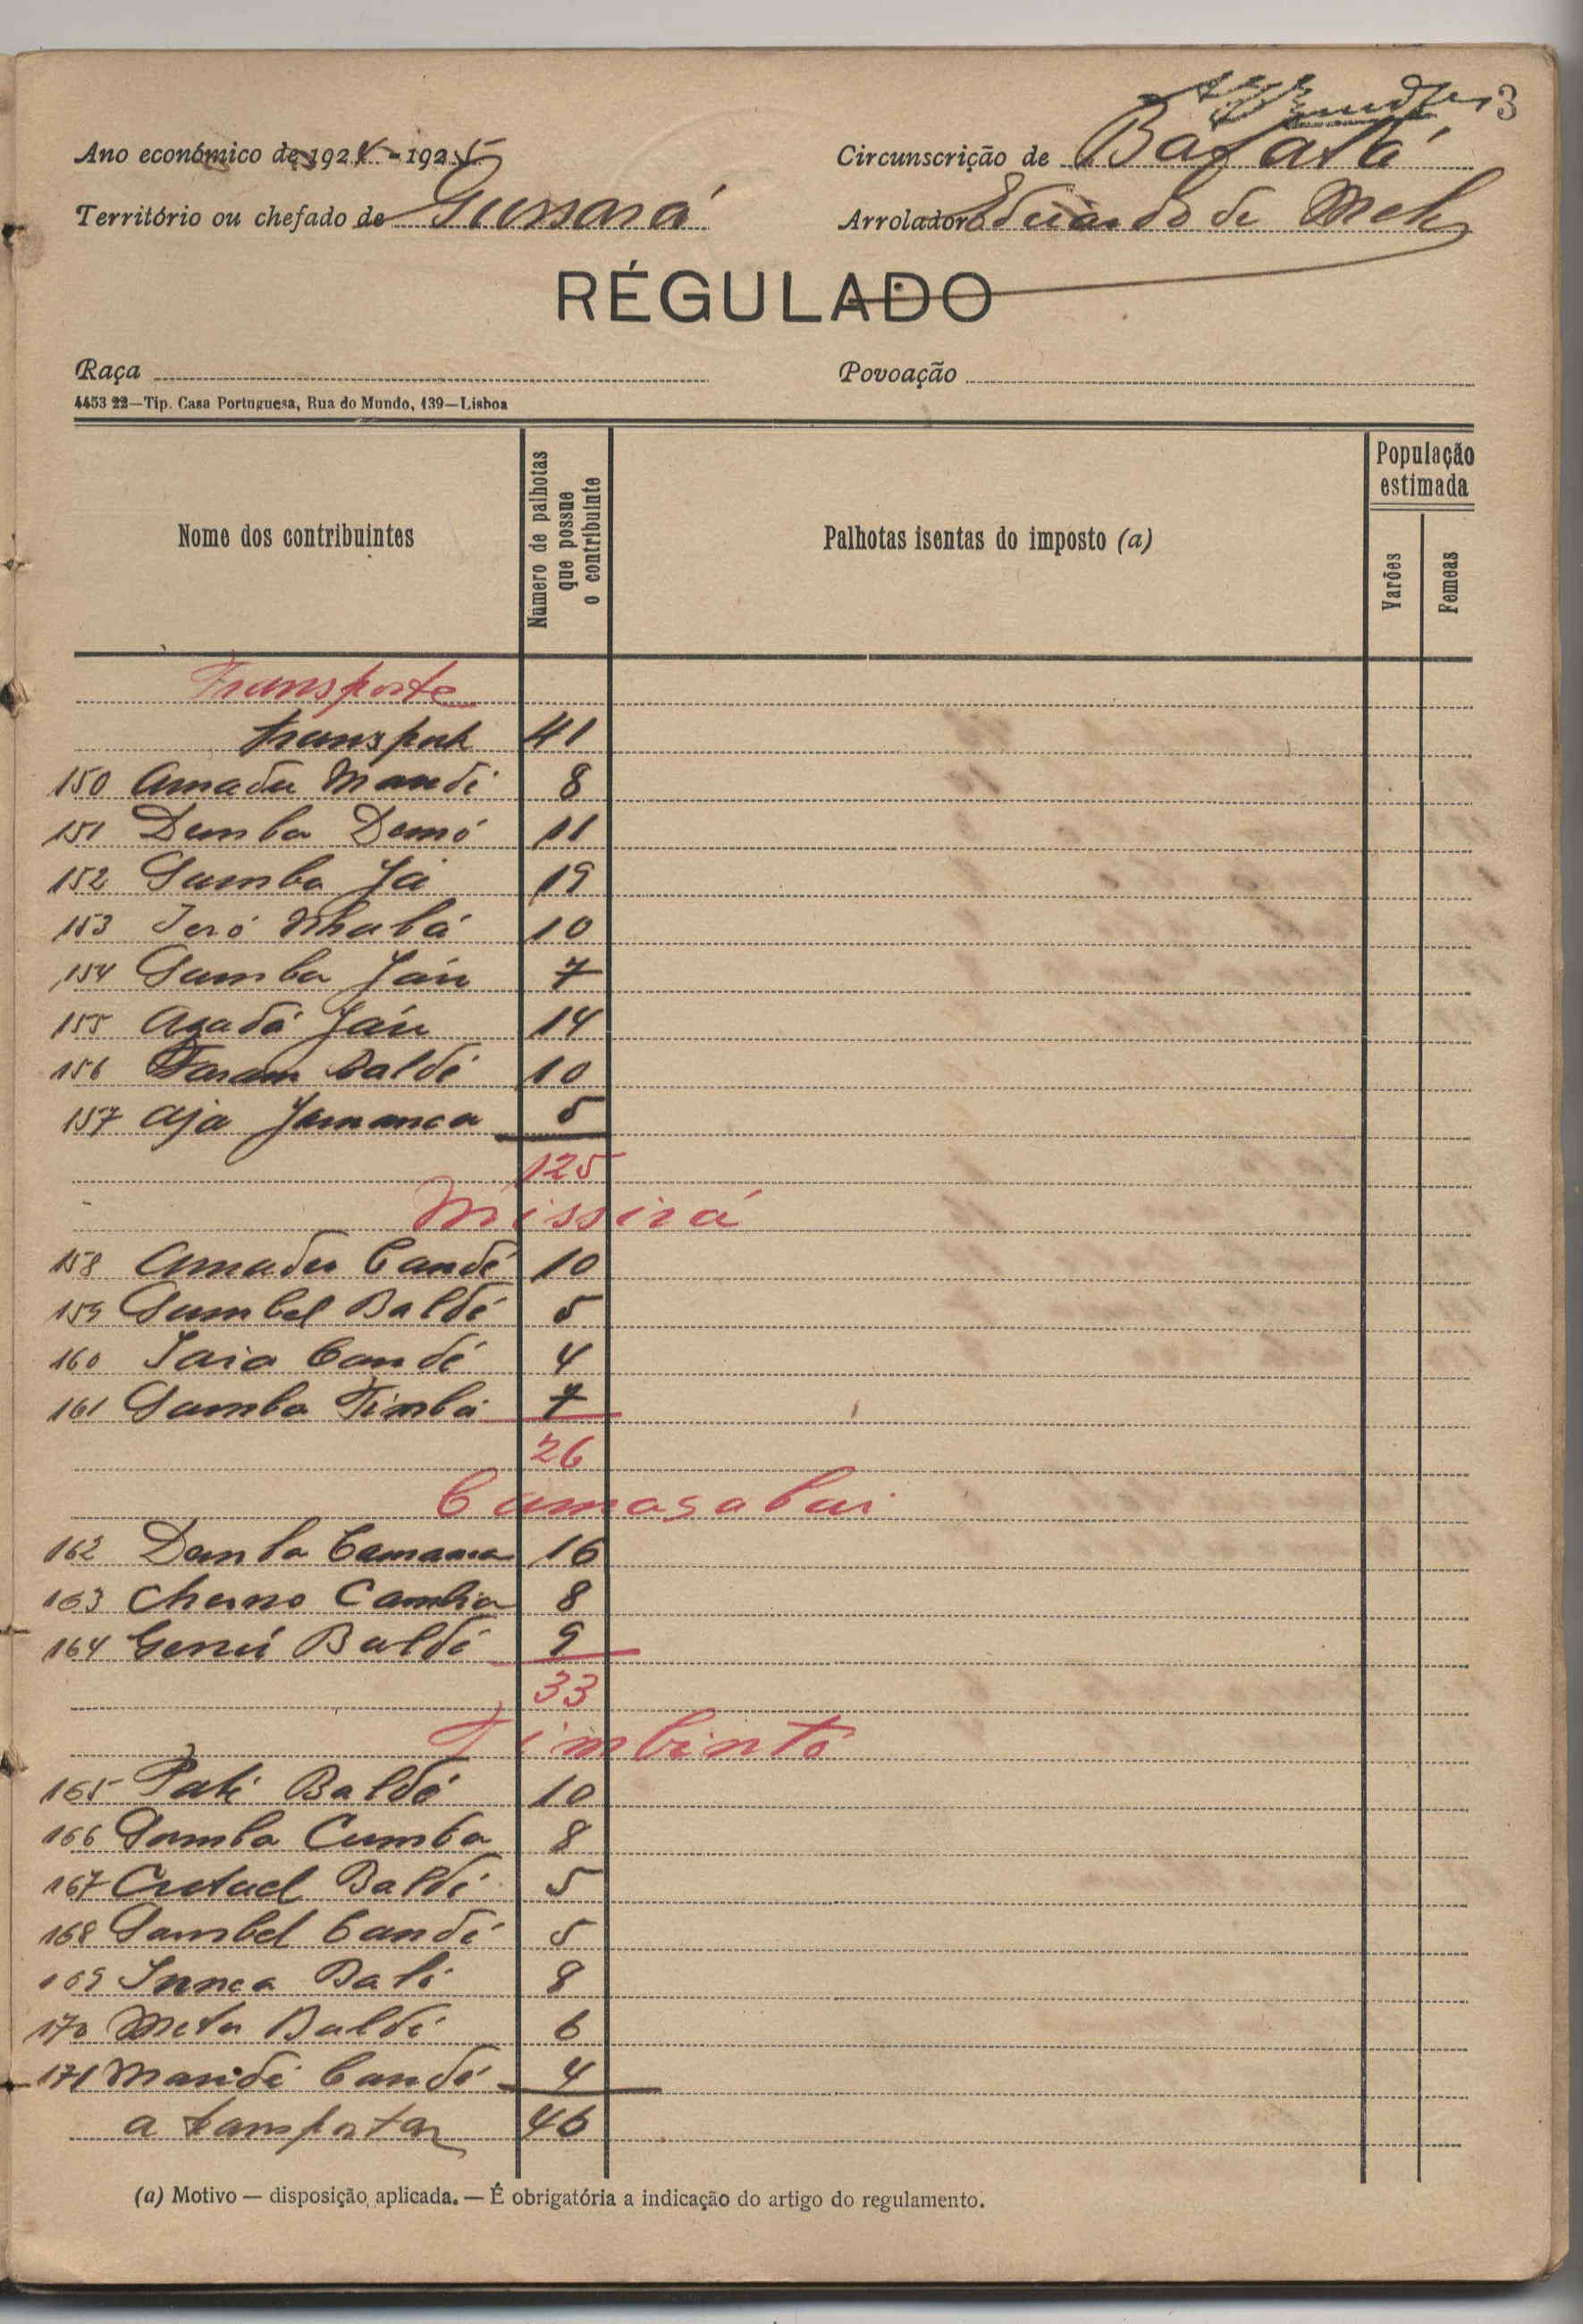 3
Ano económico de 1924 - 1925
Circunscrição de Bafatá
Território ou chefado de Gussará
Arrolador Eduardo de Melo
RÉGULADO
Raça
Povoação
4453 22—Tip. Casa Portuguesa, Rua do Mundo, 139—Lisboa
Nome dos contribuintes
Número de palhotas que possue o contribuinte
Palhotas isentas do imposto (a)
População estimada
Varões
Femeas
Transporte
Transporte 41
150 Amadu Mandi 8
151 Demba Demó 11
152 Samba Já 19
153 Jeró Nhabá 10
154 Samba Jáu 7
155 Agadá Jáu 14
156 Faram Baldé 10
157 Aja Jamanca 5
125
Missirá
158 Amadu Candé 10
159 Sambel Baldé 5
160 Iaia Candé 4
161 Samba Timbá 7
26
Camasabai
162 Demba Camanca 16
163 Cherno Cambia 8
164 Genú Baldé 9
33
Timbintó
165 Pate Baldé 10
166 Samba Cumba 8
167 Baldé 5
168 Sambel Candé 5
169 Innca Bali 8
170 Meta Baldé 6
171 Maridi Candé 4
a transportar 46
(a) Motivo — disposição aplicada. — É obrigatória a indicação do artigo do regulamento.